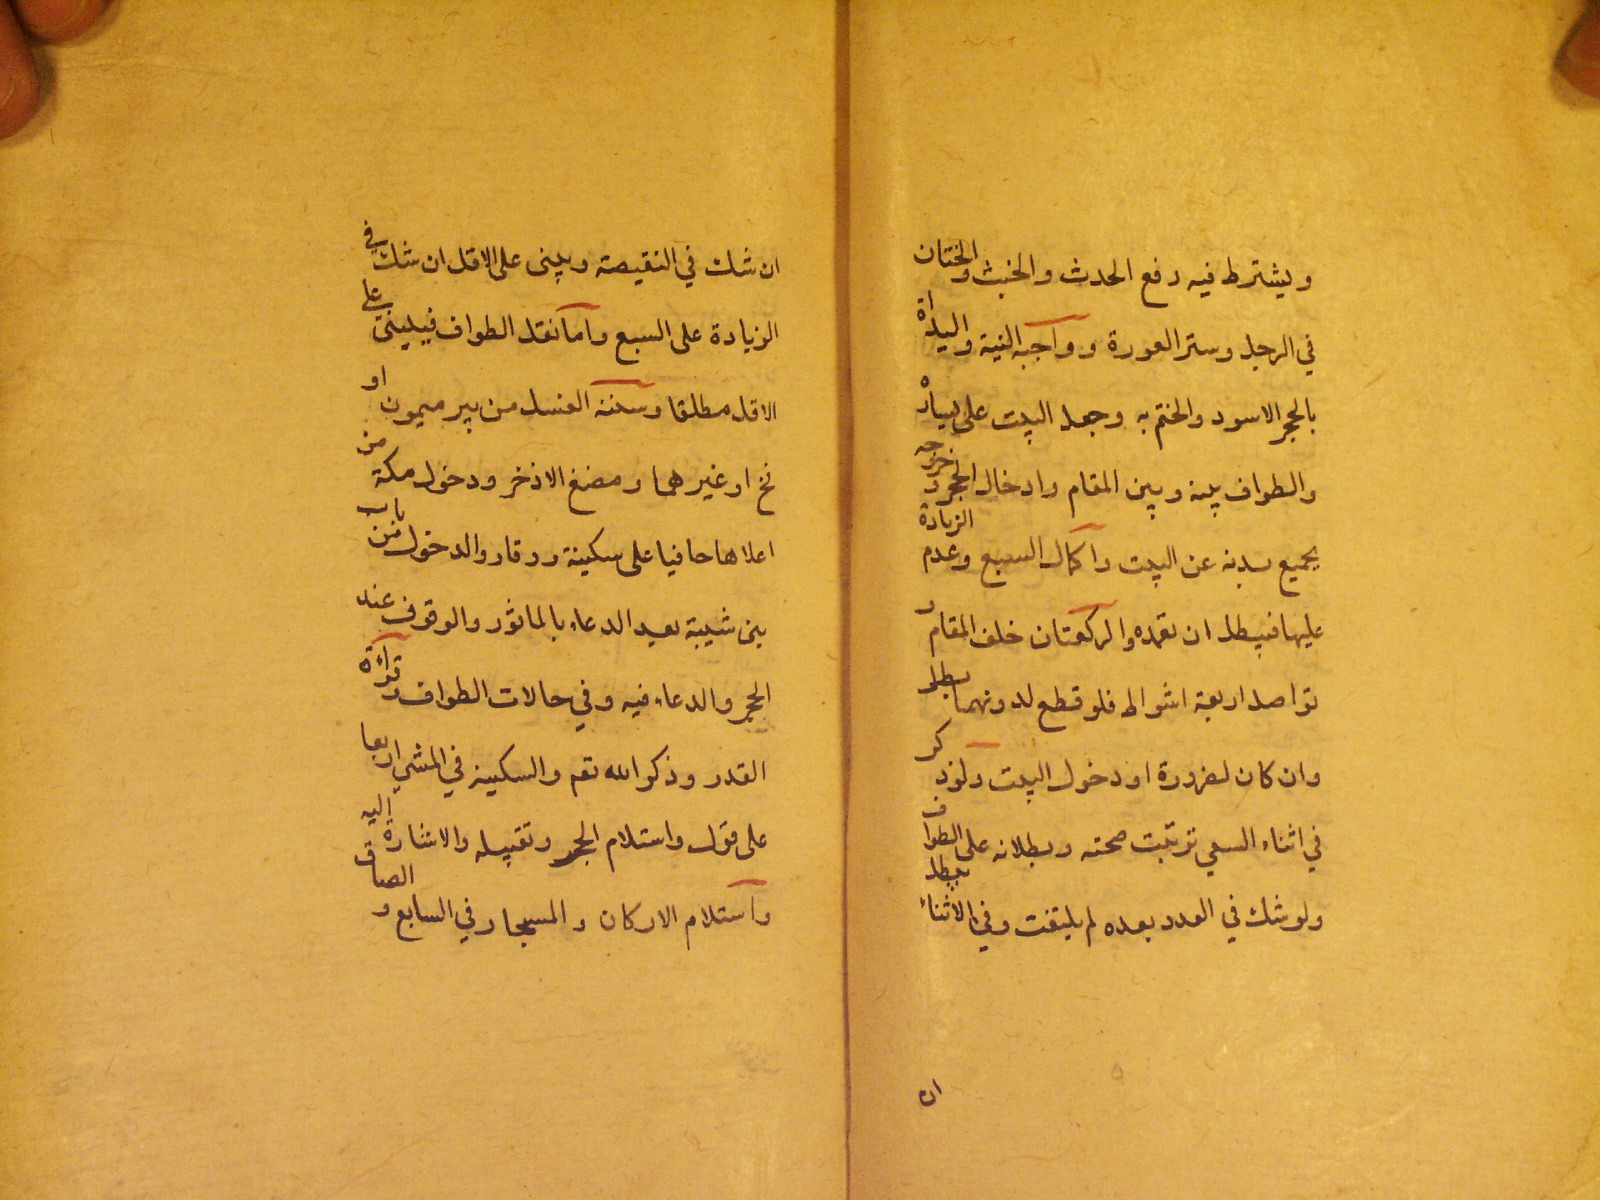 ويشترط فيه رفع الحدث والخبث والختان
في الرجل وستر العورة وواجبه النية والبداة
بالحجر الاسود والختم به وجعل البيت على يساره
والطواف بينه وبين المقام وادخال الحجر وخروجه
بجميع بدنه عن البيت واكمال السبع وعدم الزيادة
عليها فيبطل ان تعمده والركعتان خلف المقام و
تواصل اربعة اشواط فلو قطع لدونهما بطل
وان كان لضرورة او دخول البيت ولو ذكر
في اثناء السعي ترتبت صحته وبطلانه على الطواف
ولو شك في العدد بعده لم يلتفت وفي الاثناء يبطل
ان
ان شك في النقيصة ويبنى على الاقل ان شك في
الزيادة على السبع واما نفل الطواف فيبنى على
الاقل مطلقا وسننه الغسل من بير ميمون او
فخ او غيرهما ومضغ الاذخر ودخول مكة من
اعلاها حافيا على سكينة ووقار والدخول من باب
بني شيبة بعد الدعاء بالماثور والوقوف عند
الحجر والدعاء فيه وفي حالات الطواف وقراءة
القدر وذكر الله تعم والسكينة في المشي اربعا
على قول واستلام الحجر وتقبيله والاشارة اليه
واستلام الاركان والمستجار في السابع و